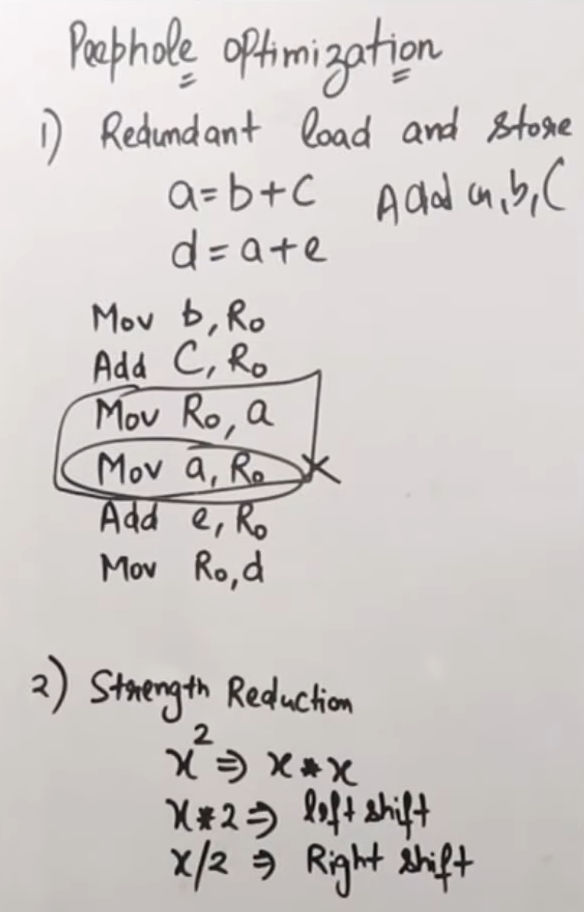 Peephole optimization
1) Redundant load and store
a=b+c Add a,b,C
d=a+e
Mov b,R₀
Add C,R₀
Mov R₀,a
Mov a,R₀
Add e,R₀
Mov R₀,d
2) Strength Reduction
x² ⇒ x*x
x*2 ⇒ left shift
x/2 ⇒ Right shift